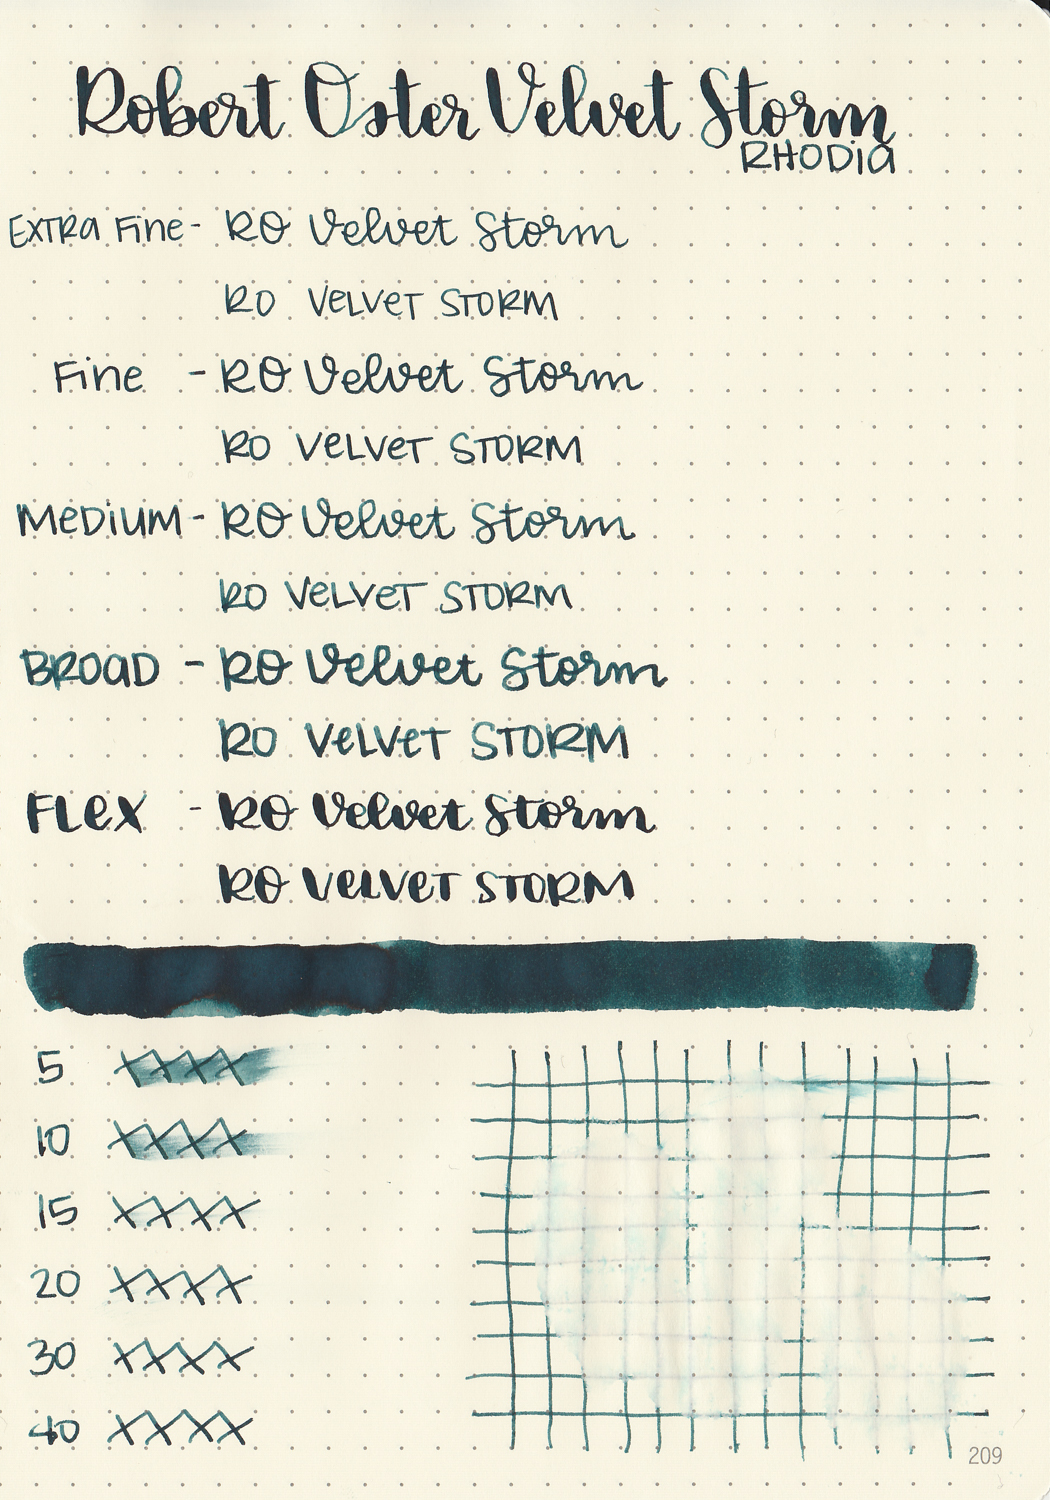 Robert Oster Velvet Storm
RHODIA
EXTRA Fine - RO Velvet Storm
RO VELVET STORM
Fine - RO Velvet Storm
RO VELVET STORM
MEDIUM - RO Velvet Storm
RO VELVET STORM
BROAD - RO Velvet Storm
RO VELVET STORM
FLEX - RO Velvet Storm
RO VELVET STORM
5 XXXX
10 XXXX
15 XXXX
20 XXXX
30 XXXX
40 XXXX
209